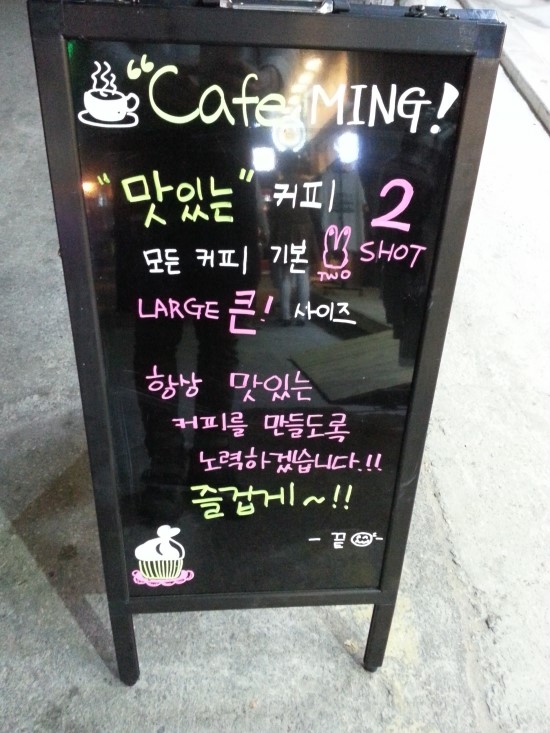 “Cafe MING!
“맛있는” 커피 2
모든 커피 기본 TWO SHOT
LARGE 큰! 사이즈
항상 맛있는
커피를 만들도록
노력하겠습니다.!!
즐겁게~!!
- 끝 -